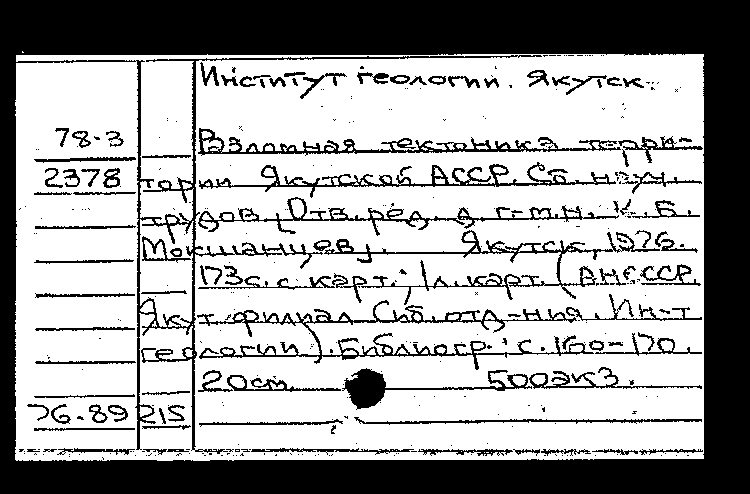 Институт геологии. Якутск.
78-3 Разломная тектоника терри-
2378 тории Якутской АССР. Сб. науч.
трудов. [Отв. ред. д. г.-м.н. К.Б.
Мокшанцев]. Якутск, 1976.
173с. с карт.; 1л. карт. (АН СССР.
Якут. филиал Сиб. отд-ния. Ин-т
геологии). Библиогр.: с. 160-170.
20см. 500экз.
76-89215